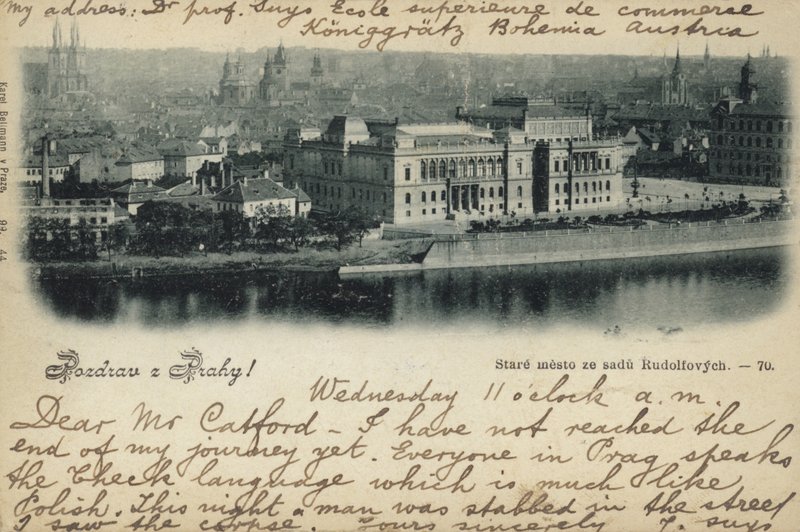 My address: Dr prof. Suys Ecole superieure de commerce
Königgrätz Bohemia Austria
Karel Bellmann v Praze.
Pozdrav z Prahy!
Staré město ze sadů Rudolfových. – 70.
Wednesday 11 o'clock a.m.
Dear Mr Catford – I have not reached the
end of my journey yet. Everyone in Prag speaks
the Check language which is much like
Polish. This night a man was stabbed in the street
I saw the corpse. Yours sincerely J. Suys